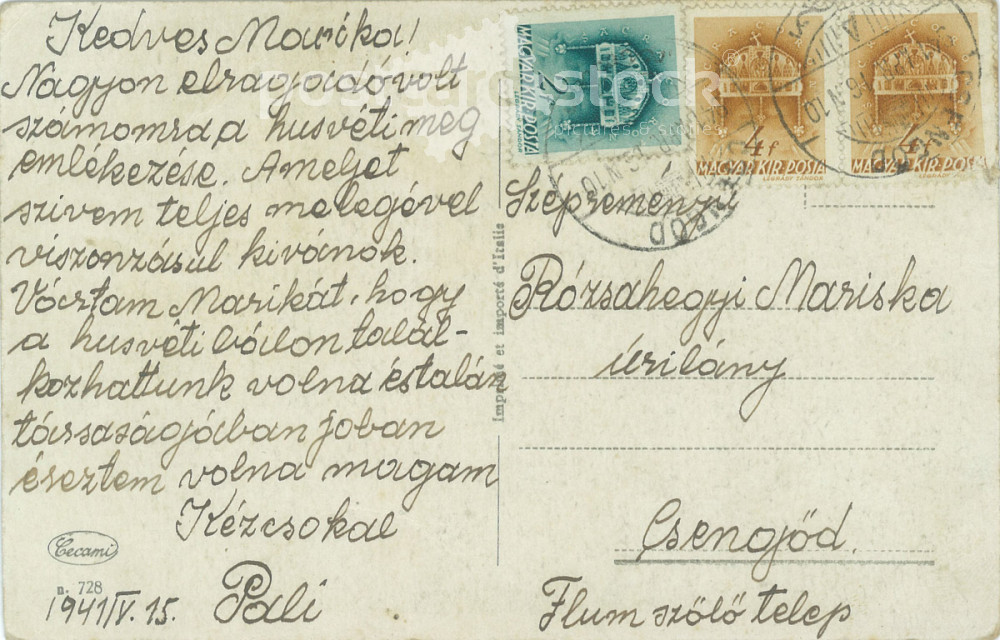 Kedves Marika!
Nagyon elragadó volt
számomra a husvéti meg
emlékezése. Amelyet
szivem teljes melegével
viszonzásul kivánok.
Vártam Marikát, hogy
a husvéti bálon talál-
kozhattunk volna és talán
társaságjában joban
éreztem volna magam
Kézcsokal
Pali
1941 IV. 15.
Cecami
n. 728
Importé et imprimé d'Italie
MAGYAR KIR. POSTA
2
4f
MAGYAR KIR. POSTA
4f
MAGYAR KIR. POSTA
Szépreményű
Rózsahegyi Mariska
úrilány
Csengőd.
Flum szőlő telep
postcards stock
pictures & stories